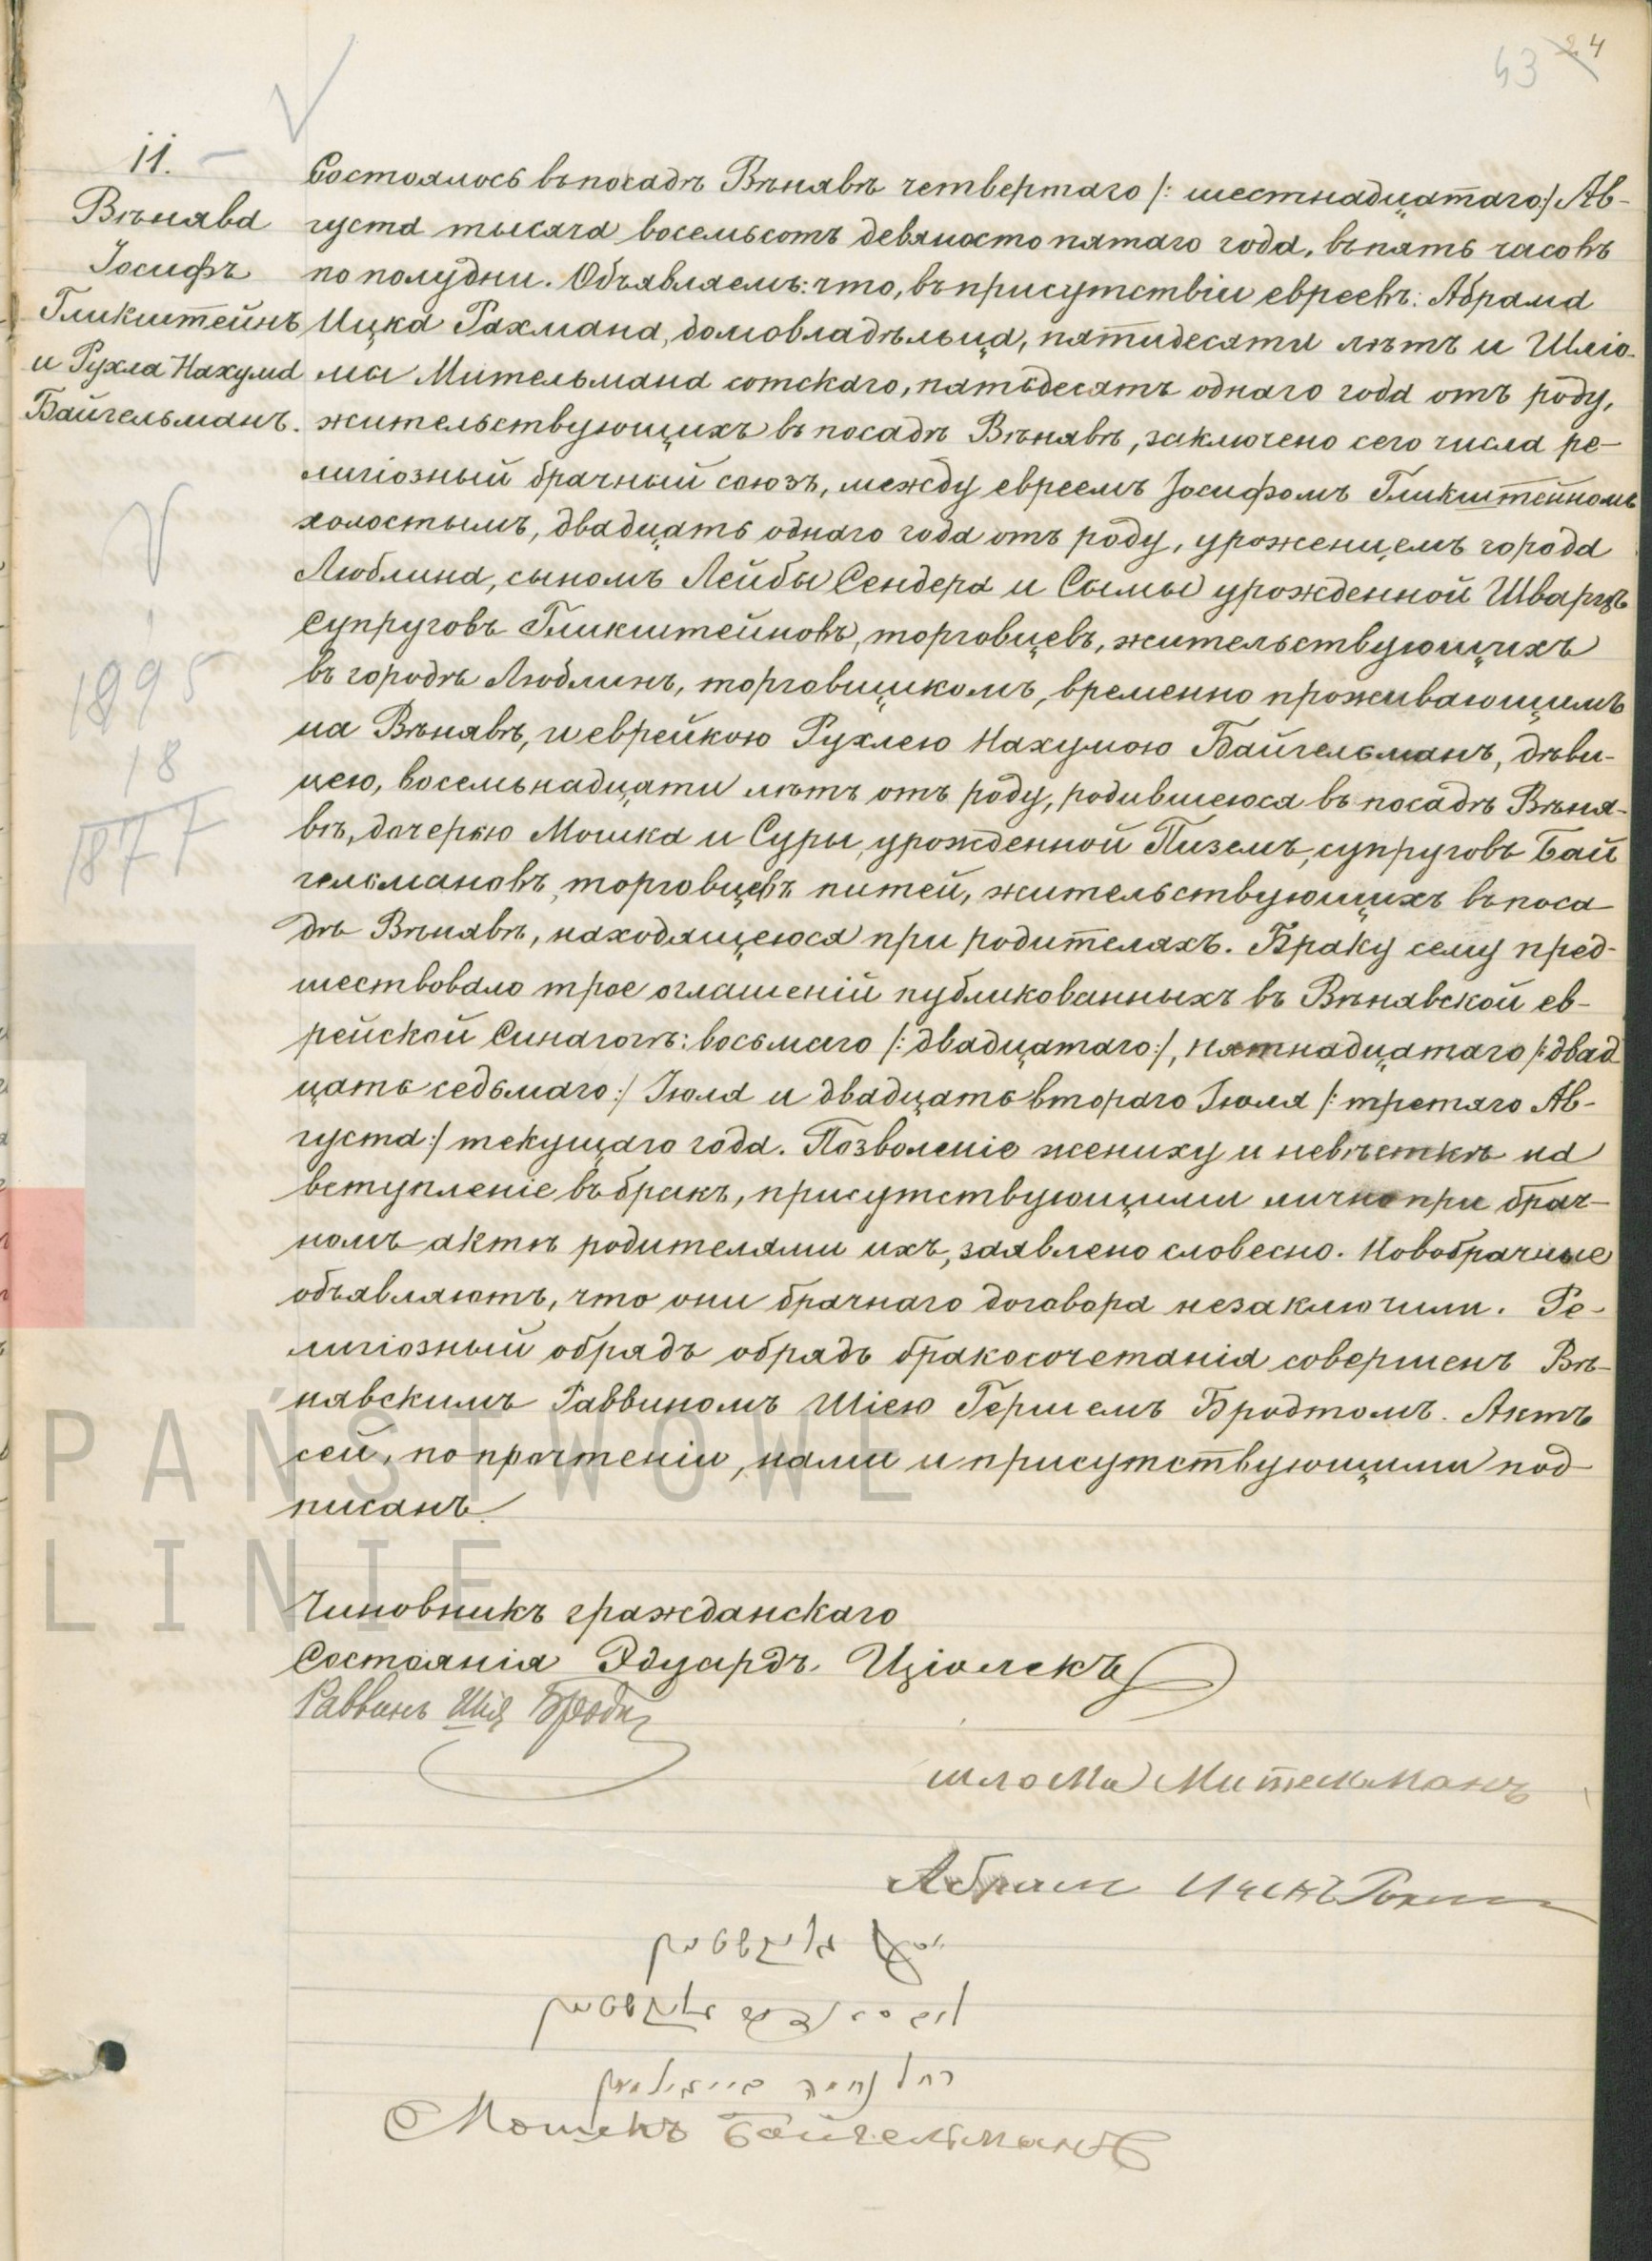 43 24
11.
Вѣнява
Іосифъ
Гликштейнъ
и Рухла Нахума
Байгельманъ.
1895
18
1877
Состоялось въ посадѣ Вѣнявѣ четвертаго /: шестнадцатаго:/ Ав-
густа тысяча восемьсотъ девяносто пятаго года, въ пять часовъ
по полудни. Объявляемъ: что, въ присутствіи евреевъ: Абрама
Ицка Рахмана, домовладѣльца, пятидесяти лѣтъ и Шліо-
мы Мительмана сотскаго, пятьдесятъ однаго года отъ роду,
жительствующихъ въ посадѣ Вѣнявѣ, заключено сего числа ре-
лигіозный брачный союзъ, между евреемъ Іосифомъ Гликштейномъ
холостымъ, двадцать однаго года отъ роду, уроженцемъ города
Люблина, сыномъ Лейбы Сендера и Сымы урожденной Шварцъ
супруговъ Гликштейновъ, торговцевъ, жительствующихъ
въ городѣ Люблинѣ, торговщикомъ, временно проживающимъ
на Вѣнявѣ, и еврейкою Рухлею Нахумою Байгельманъ, дѣви-
цею, восемьнадцати лѣтъ отъ роду, родившеюся въ посадѣ Вѣня-
вѣ, дочерью Мошка и Суры, урожденной Пиземъ, супруговъ Бай
гельмановъ, торговцевъ питей, жительствующихъ въ поса
дѣ Вѣнявѣ, находящеюся при родителяхъ. Браку сему пред-
шествовало трое оглашеній публикованныхъ въ Вѣнявской ев-
рейской Синагогѣ: восьмаго /: двадцатаго:/, пятнадцатаго /: двад
цать седьмаго:/ Іюля и двадцать втораго Іюля /: третяго Ав-
густа:/ текущаго года. Позволеніе жениху и невѣсткѣ на
вступленіе въ бракъ, присутствующими лично при брач-
номъ актѣ родителями ихъ, заявлено словесно. Новобрачные
объявляютъ, что они брачнаго договора незаключили. Ре-
лигіозный обрядъ обрядъ бракосочетанія совершенъ Вѣ-
нявскимъ Раввиномъ Шіею Гершемъ Бродтомъ. Актъ
сей, по прочтеніи, нами и присутствующими под
писанъ.
Чиновникъ гражданскаго
Состоянія Эдуардъ Ціолекъ
Раввинъ Шія Бродт
шлома Мительманъ
Абрам Ицекъ Рахман
גליקשטיין
גליקשטיין
רחל נחומה בייגילמאן
Мошекъ Байгельманъ
PAŃSTWOWE
LINIE